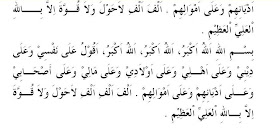 أَدْيَانِهِمْ وَعَلَى أَمْوَالِهِمْ . أَلْفَ أَلْفِ لَاحَوْلَ وَلَا قُوَّةَ إِلَّا بِاللهِ
الْعَلِيِّ الْعَظِيْمِ .
بِسْمِ اللهِ اللهُ أَكْبَرُ، اللهُ أَكْبَرُ، اللهُ أَكْبَرُ، أَقُوْلُ عَلَى نَفْسِيْ وَعَلَى
دِيْنِيْ وَعَلَى أَهْلِيْ وَعَلَى أَوْلَادِيْ وَعَلَى مَالِيْ وَعَلَى أَصْحَابِيْ
وَعَلَى أَدْيَانِهِمْ وَعَلَى أَمْوَالِهِمْ . أَلْفَ أَلْفِ أَلْفِ لَاحَوْلَ وَلَا قُوَّةَ
إِلَّا بِاللهِ الْعَلِيِّ الْعَظِيْمِ .